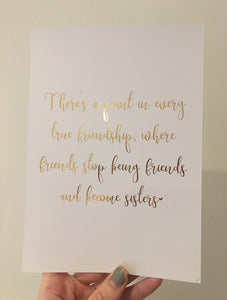 There's a point in every
true friendship, where
friends stop being friends
and become sisters♥